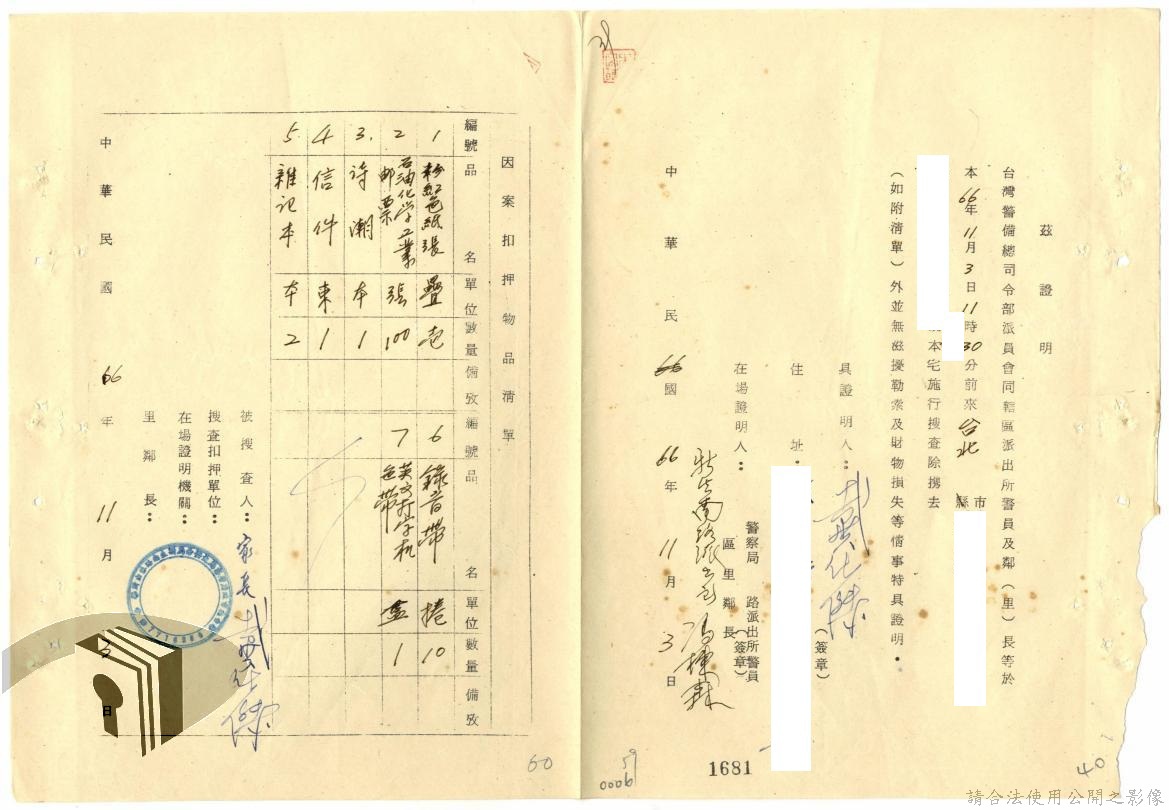 茲證明
台灣警備總司令部派員會同轄區派出所警員及鄰(里)長等於
本66年11月3日11時30分前來台北市縣
本宅施行搜查除携去
(如附清單)外並無滋擾勒索及財物損失等情事特具證明。
具證明人:戴化傑(簽章)
住址:
在場證明人:
警察局 路派出所警員
區里鄰長(簽章)
新生南路派出所
中華民66國66年11月3日
1681
0006
59
40
因案扣押物品清單
編號 品名 單位 數量 備攷 編號 品名 單位 數量 備攷
1 粉紅色紙張 疊 壱 6 錄音帶 捲 10
2 石油化学工業邮票 張 100 7 英文打字机色帶 盒 1
3. 詩潮 本 1
4 信件 束 1
5. 雜記本 本 2
被搜查人:家長
搜查扣押單位:
在場證明機關:
里鄰長:
中華民國66年11月3日
60
請合法使用公開之影像